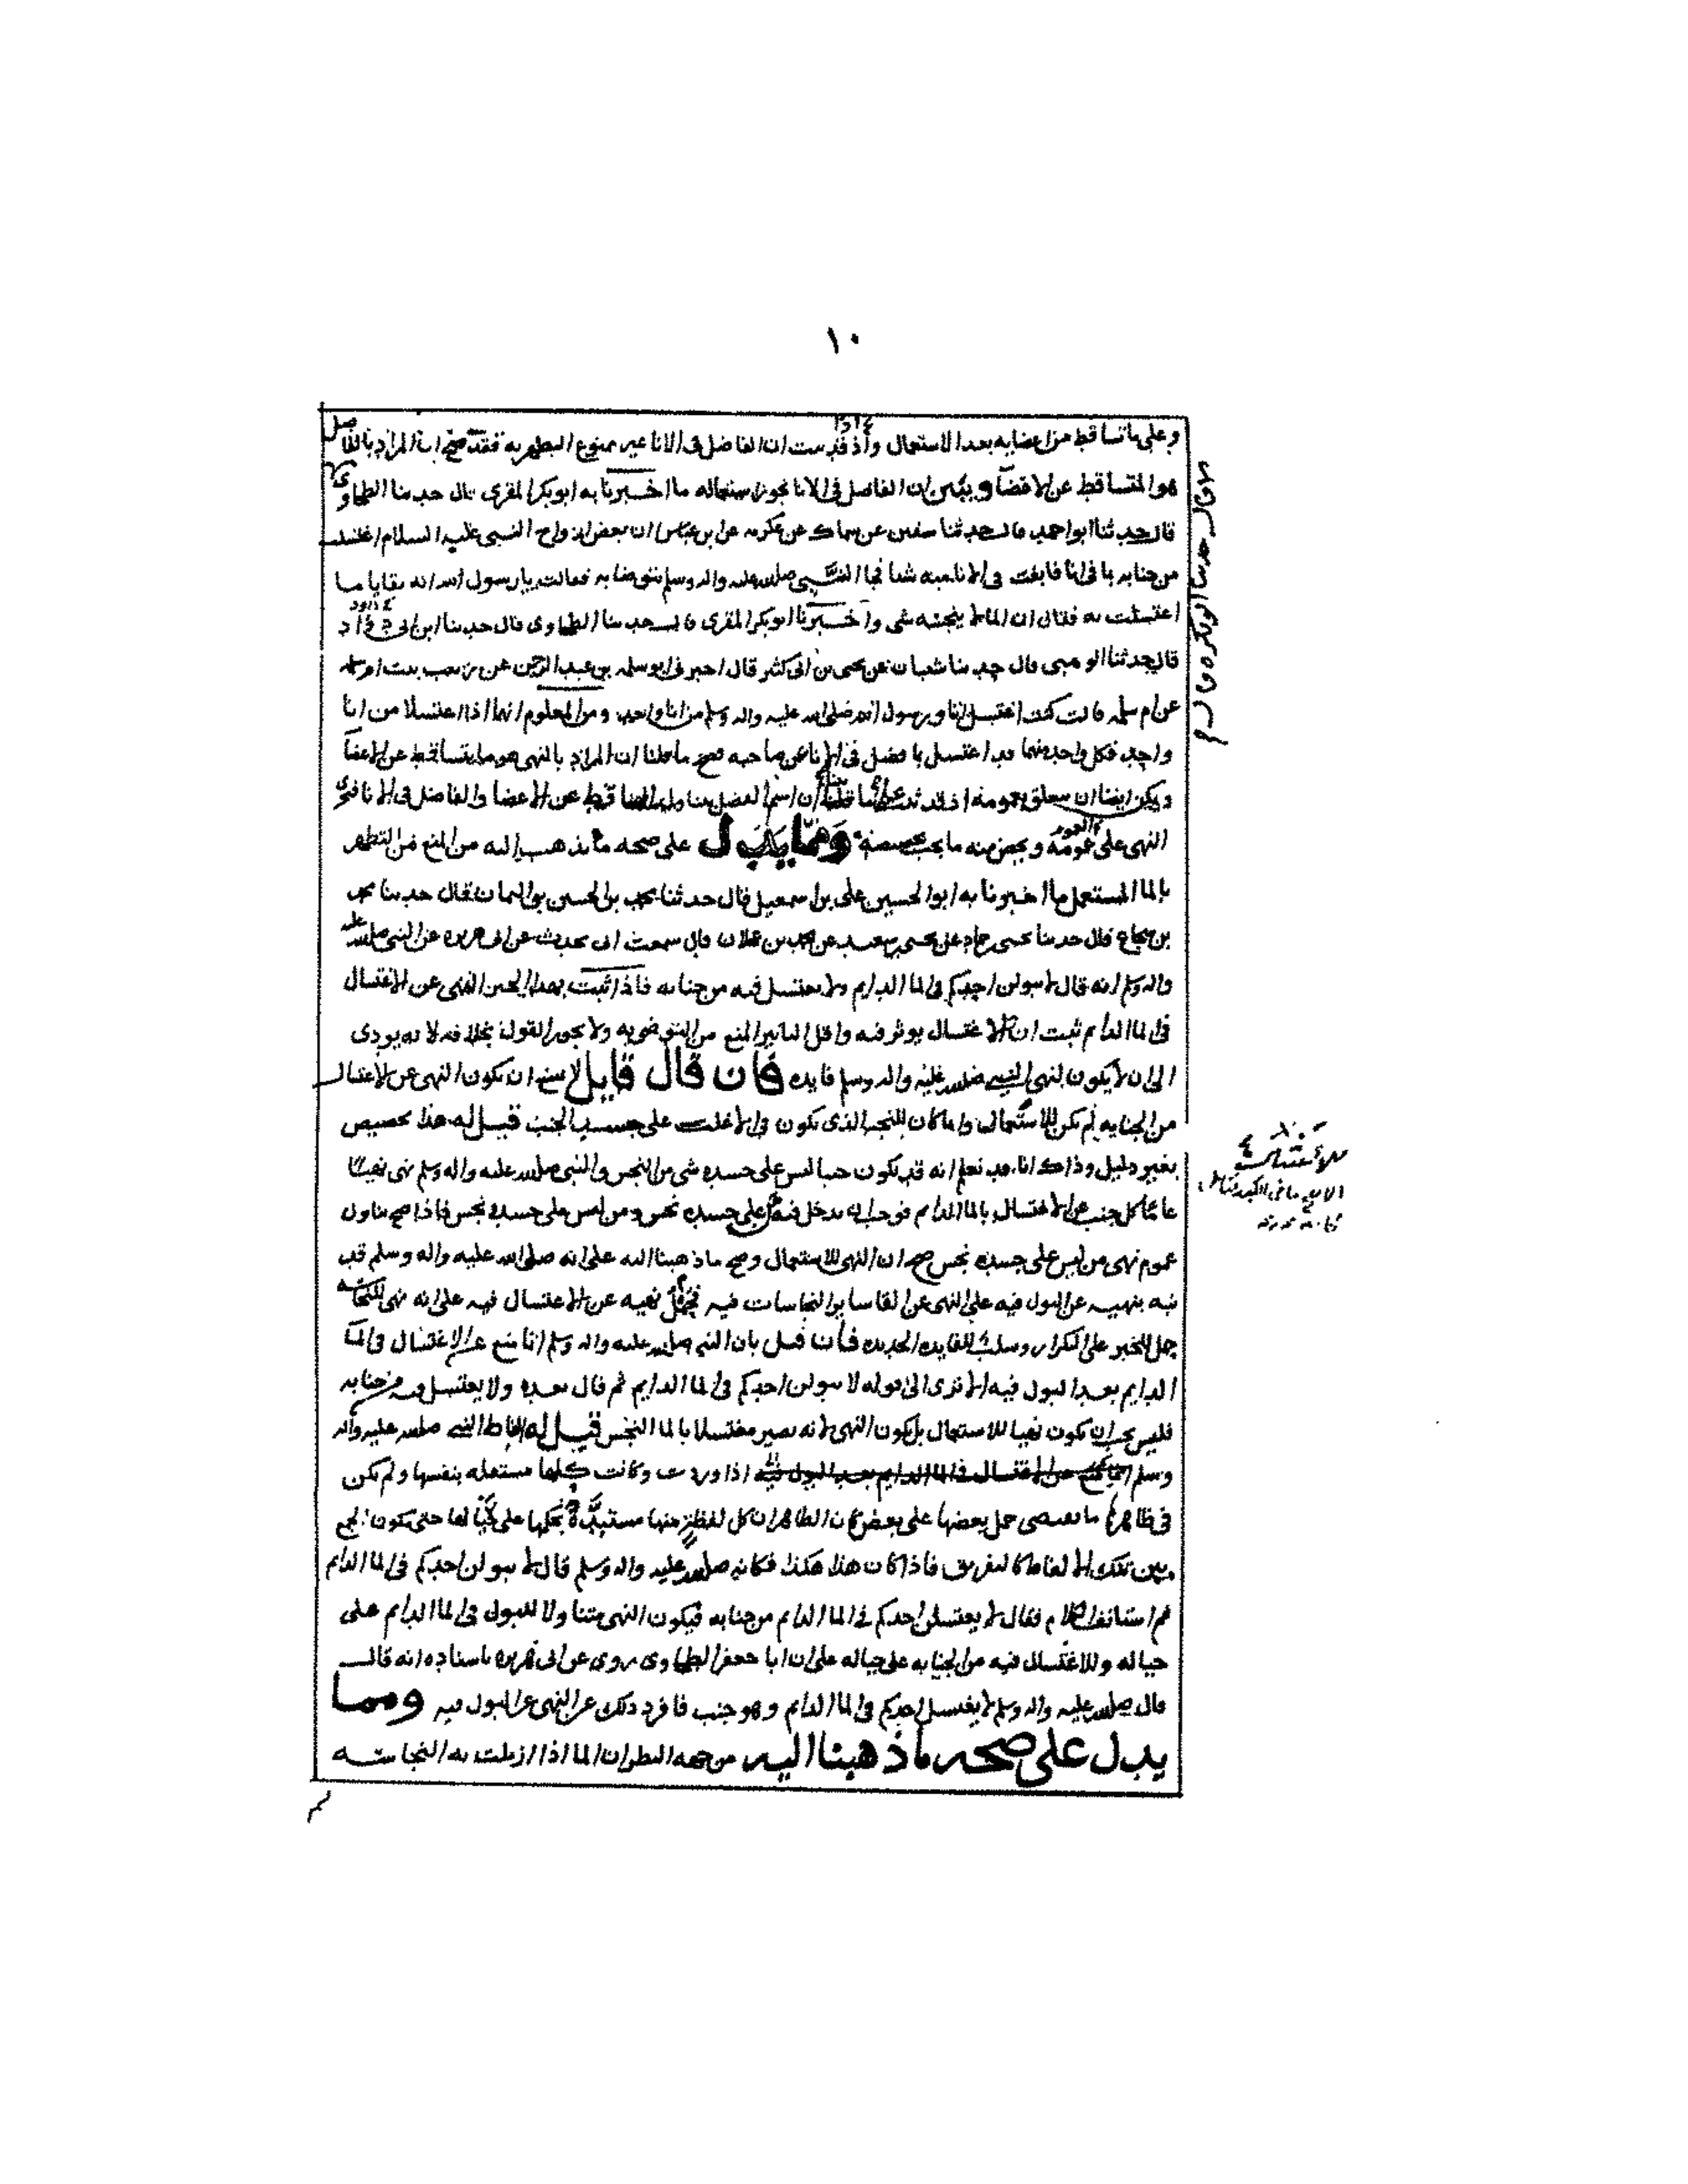 ١٠
وعلى ما تساقط من اعضايه بعد الاستعمال واذ قد ثبت ان الفاضل فى الانا غير ممنوع التطهر به فقد صح ان المراد بالفاضل
هو المتساقط عن الاعضا ويبين ان الفاضل فى الانا يجوز استعماله ما اخبرنا به ابو بكر المقرى قال حدثنا الطحاوى
قال حدثنا ابو احمد قال حدثنا سفين عن سماك عن عكرمه عن ابن عباس ان بعض ازواج النبى عليه السلام اغتسلت
من جنابه فى انا فابقت فى الانا منه شيا فجا النبى صلى الله عليه واله وسلم يتوضا به فقالت يا رسول الله انه بقايا ما
اغتسلت به فقال ان الما لا ينجسه شى واخبرنا ابو بكر المقرى قال حدثنا الطحاوى قال حدثنا ابن ابى داود
قال حدثنا الوهبى قال حدثنا شيبان عن يحيى بن ابى كثير قال اخبرنى ابو سلمه بن عبد الرحمن عن زينب بنت ام سلمه
عن ام سلمه قالت كنت اغتسل انا ورسول الله صلى الله عليه واله وسلم من انا واحد ومن المعلوم انهما اذا اغتسلا من انا
واحد فكل واحد منهما قد اغتسل بما فضل فى الانا عن صاحبه فصح ما قلنا ان المراد بالنهى هو ما يتساقط عن الاعضا
ويمكن ايضا ان يتعلق بعمومه اذ قد ثبت ان اسم الفضل يتناول المتساقط عن الاعضا والفاضل فى الانا فنجرى
النهى على عمومه ونخص منه ما يجب تخصيصه ومما يدل على صحه ما نذهب اليه من المنع من التطهر
بالما المستعمل ما اخبرنا به ابو الحسين على بن اسمعيل قال حدثنا محمد بن الحسين بن اليمان قال حدثنا محمد
بن شجاع قال حدثنا يحيى بن سعيد عن محمد بن عجلان قال سمعت ابى يحدث عن ابى هريره عن النبى صلى الله عليه
واله وسلم انه قال لا يبولن احدكم فى الما الدايم ولا يغتسل فيه من جنابه فاذا ثبت بهذا الخبر النهى عن الاغتسال
فى الما الدايم ثبت ان الاغتسال يوثر فيه واقل التاثير المنع من التوضى به ولا يجوز القول بخلافه لانه يودى
الى ان لا يكون لنهى النبى صلى الله عليه واله وسلم فايده فان قال قايل لا يمتنع ان يكون النهى عن الاغتسال
من الجنابه لم يكن للاستعمال وانما كان للنجس الذى يكون فى الاغلب على جسد الجنب قيل له هذا تخصيص
بغير دليل وذاك انا قد نعلم انه قد يكون جنبا ليس على جسده شى من النجس والنبى صلى الله عليه واله وسلم نهى نهيا
عاما كل جنب عن الاغتسال بالما الدايم فوجب ان يدخل فيه من على جسده نجس ومن ليس على جسده نجس فاذا صح تناول
عموم نهى من ليس على جسده نجس صح ان النهى للاستعمال وصح ما ذهبنا اليه على انه صلى الله عليه واله وسلم قد
نبه بنهيه عن البول فيه على النهى عن القا ساير النجاسات فيه فحمل نهيه عن الاغتسال فيه على انه نهى للنجاسه
حمل للخبر على التكرار وسلب للفايده الجديده فان قيل بان النبى صلى الله عليه واله وسلم انما منع عن الاغتسال فى الما
الدايم بعد البول فيه الا ترى الى قوله لا يبولن احدكم فى الما الدايم ثم قال بعده ولا يغتسل فيه من جنابه
فليس يجب ان يكون نهيا للاستعمال بل يكون النهى لانه يصير مغتسلا بالما النجس قيل له الفاظ النبى صلى الله عليه واله
وسلم اذا وردت وكانت كلها مستعمله بنفسها ولم يكن
فى ظاهرها ما يقتضى حمل بعضها على بعض كان الظاهر ان كل لفظه منها مستبده بحكمها على حيالها حتى يكون الجمع
بين تلك الالفاظ كالتفريق فاذا كان هذا هكذا فكانه صلى الله عليه واله وسلم قال لا يبولن احدكم فى الما الدايم
ثم استانف الكلام فقال لا يغتسلن احدكم فى الما الدايم من جنابه فيكون النهى متناولا للبول فى الما الدايم على
حياله وللاغتسال فيه من الجنابه على حياله على ان ابا جعفر الطحاوى روى عن ابى هريره باسناده انه قال
قال صلى الله عليه واله وسلم لا يغتسل احدكم فى الما الدايم وهو جنب فافرد ذلك عن النهى عن البول فيه ومما
يدل على صحه ما ذهبنا اليه من جهه النظر ان الما اذا ازيلت به النجاسه
قال حدثنا ابو بكره قال